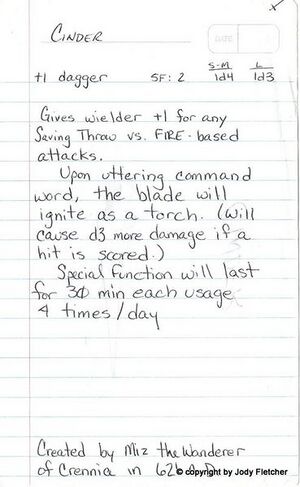 CINDER
DATE
S-M L
+1 dagger SF: 2 1d4 1d3
Gives wielder +1 for any
Saving Throw vs. FIRE-based
attacks.
Upon uttering command
word, the blade will
ignite as a torch. (will
cause d3 more damage if a
hit is scored.)
Special Function will last
for 30 min each usage
4 times/day
Created by Miz the Wanderer
of Crennia in
© copyright by Jody Fletcher